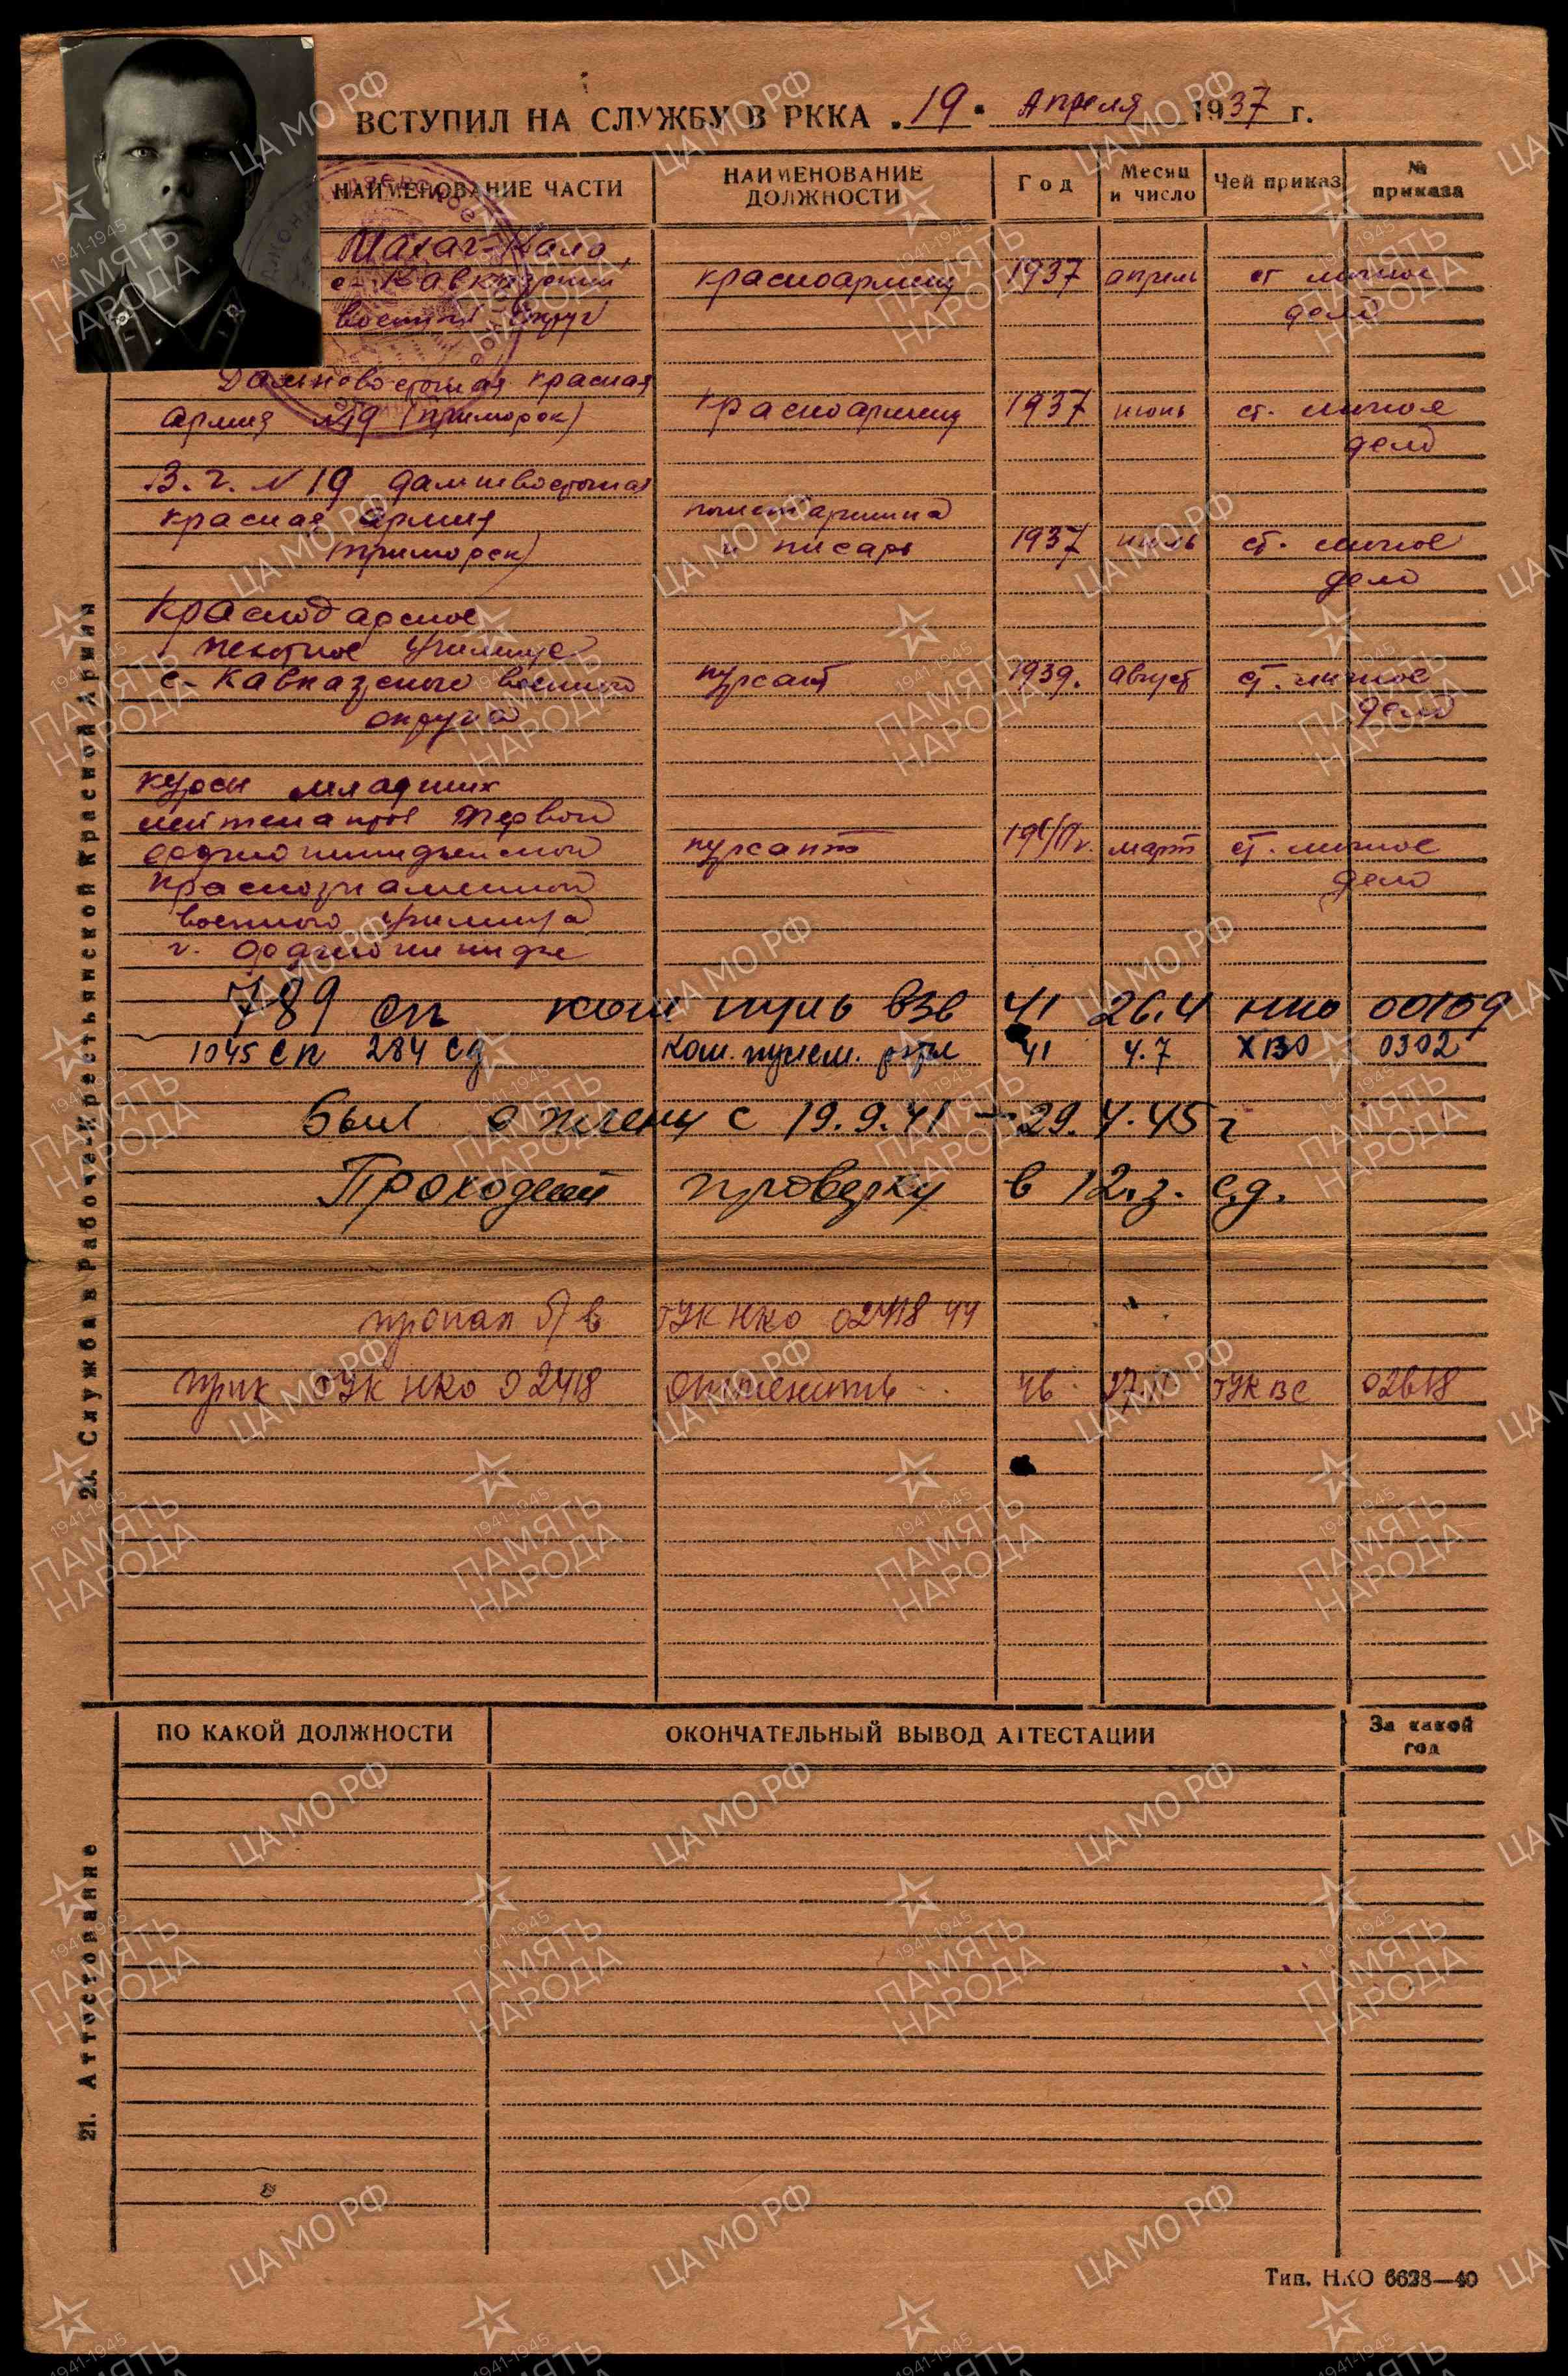 ВСТУПИЛ НА СЛУЖБУ В РККА „19" Апреля 1937 г.
НАИМЕНОВАНИЕ ЧАСТИ
НАИМЕНОВАНИЕ ДОЛЖНОСТИ
Год
Месяц и число
Чей приказ
№ приказа
Махач-Кала,
с-Кавказский красноармеец 1937 апрель ст личное
военный округ дело
Дальневосточная красная
армия №19 (приморск) красноармеец 1937 июнь ст. личное
дело
В.г. N 19 дальневосточная
красная армия помстаршина
(приморск) и писарь 1937 июль ст. личное
дело
Краснодарское
пехотное училище
с-Кавказского военного курсант 1939. август ст. личное
округа дело
курсы младших
лейтенантов первой
орджоникидзевской курсант март ст. личное
краснознаменной дело
военного училища
г. Орджоникидзе
789 сп ком пуль взв 41 26.4 НКО 00109
1045 сп 284 сд Ком. пулем. роты 41 4.7 ХВО 0302
Был в плену с 19.9.41 – 29.4.45 г
Проходит проверку в 12.з. с.д.
пропал б/в ГУК НКО 02418 44
прик ГУК НКО 02418 отменить 46 ГУК ВС 02618
20. Служба в Рабоче-Крестьянской Красной Армии
ПО КАКОЙ ДОЛЖНОСТИ
ОКОНЧАТЕЛЬНЫЙ ВЫВОД АТТЕСТАЦИИ
За какой год
21. Аттестование
Тип. НКО 6628—40
ЦА МО РФ
1941-1945
ПАМЯТЬ
НАРОДА